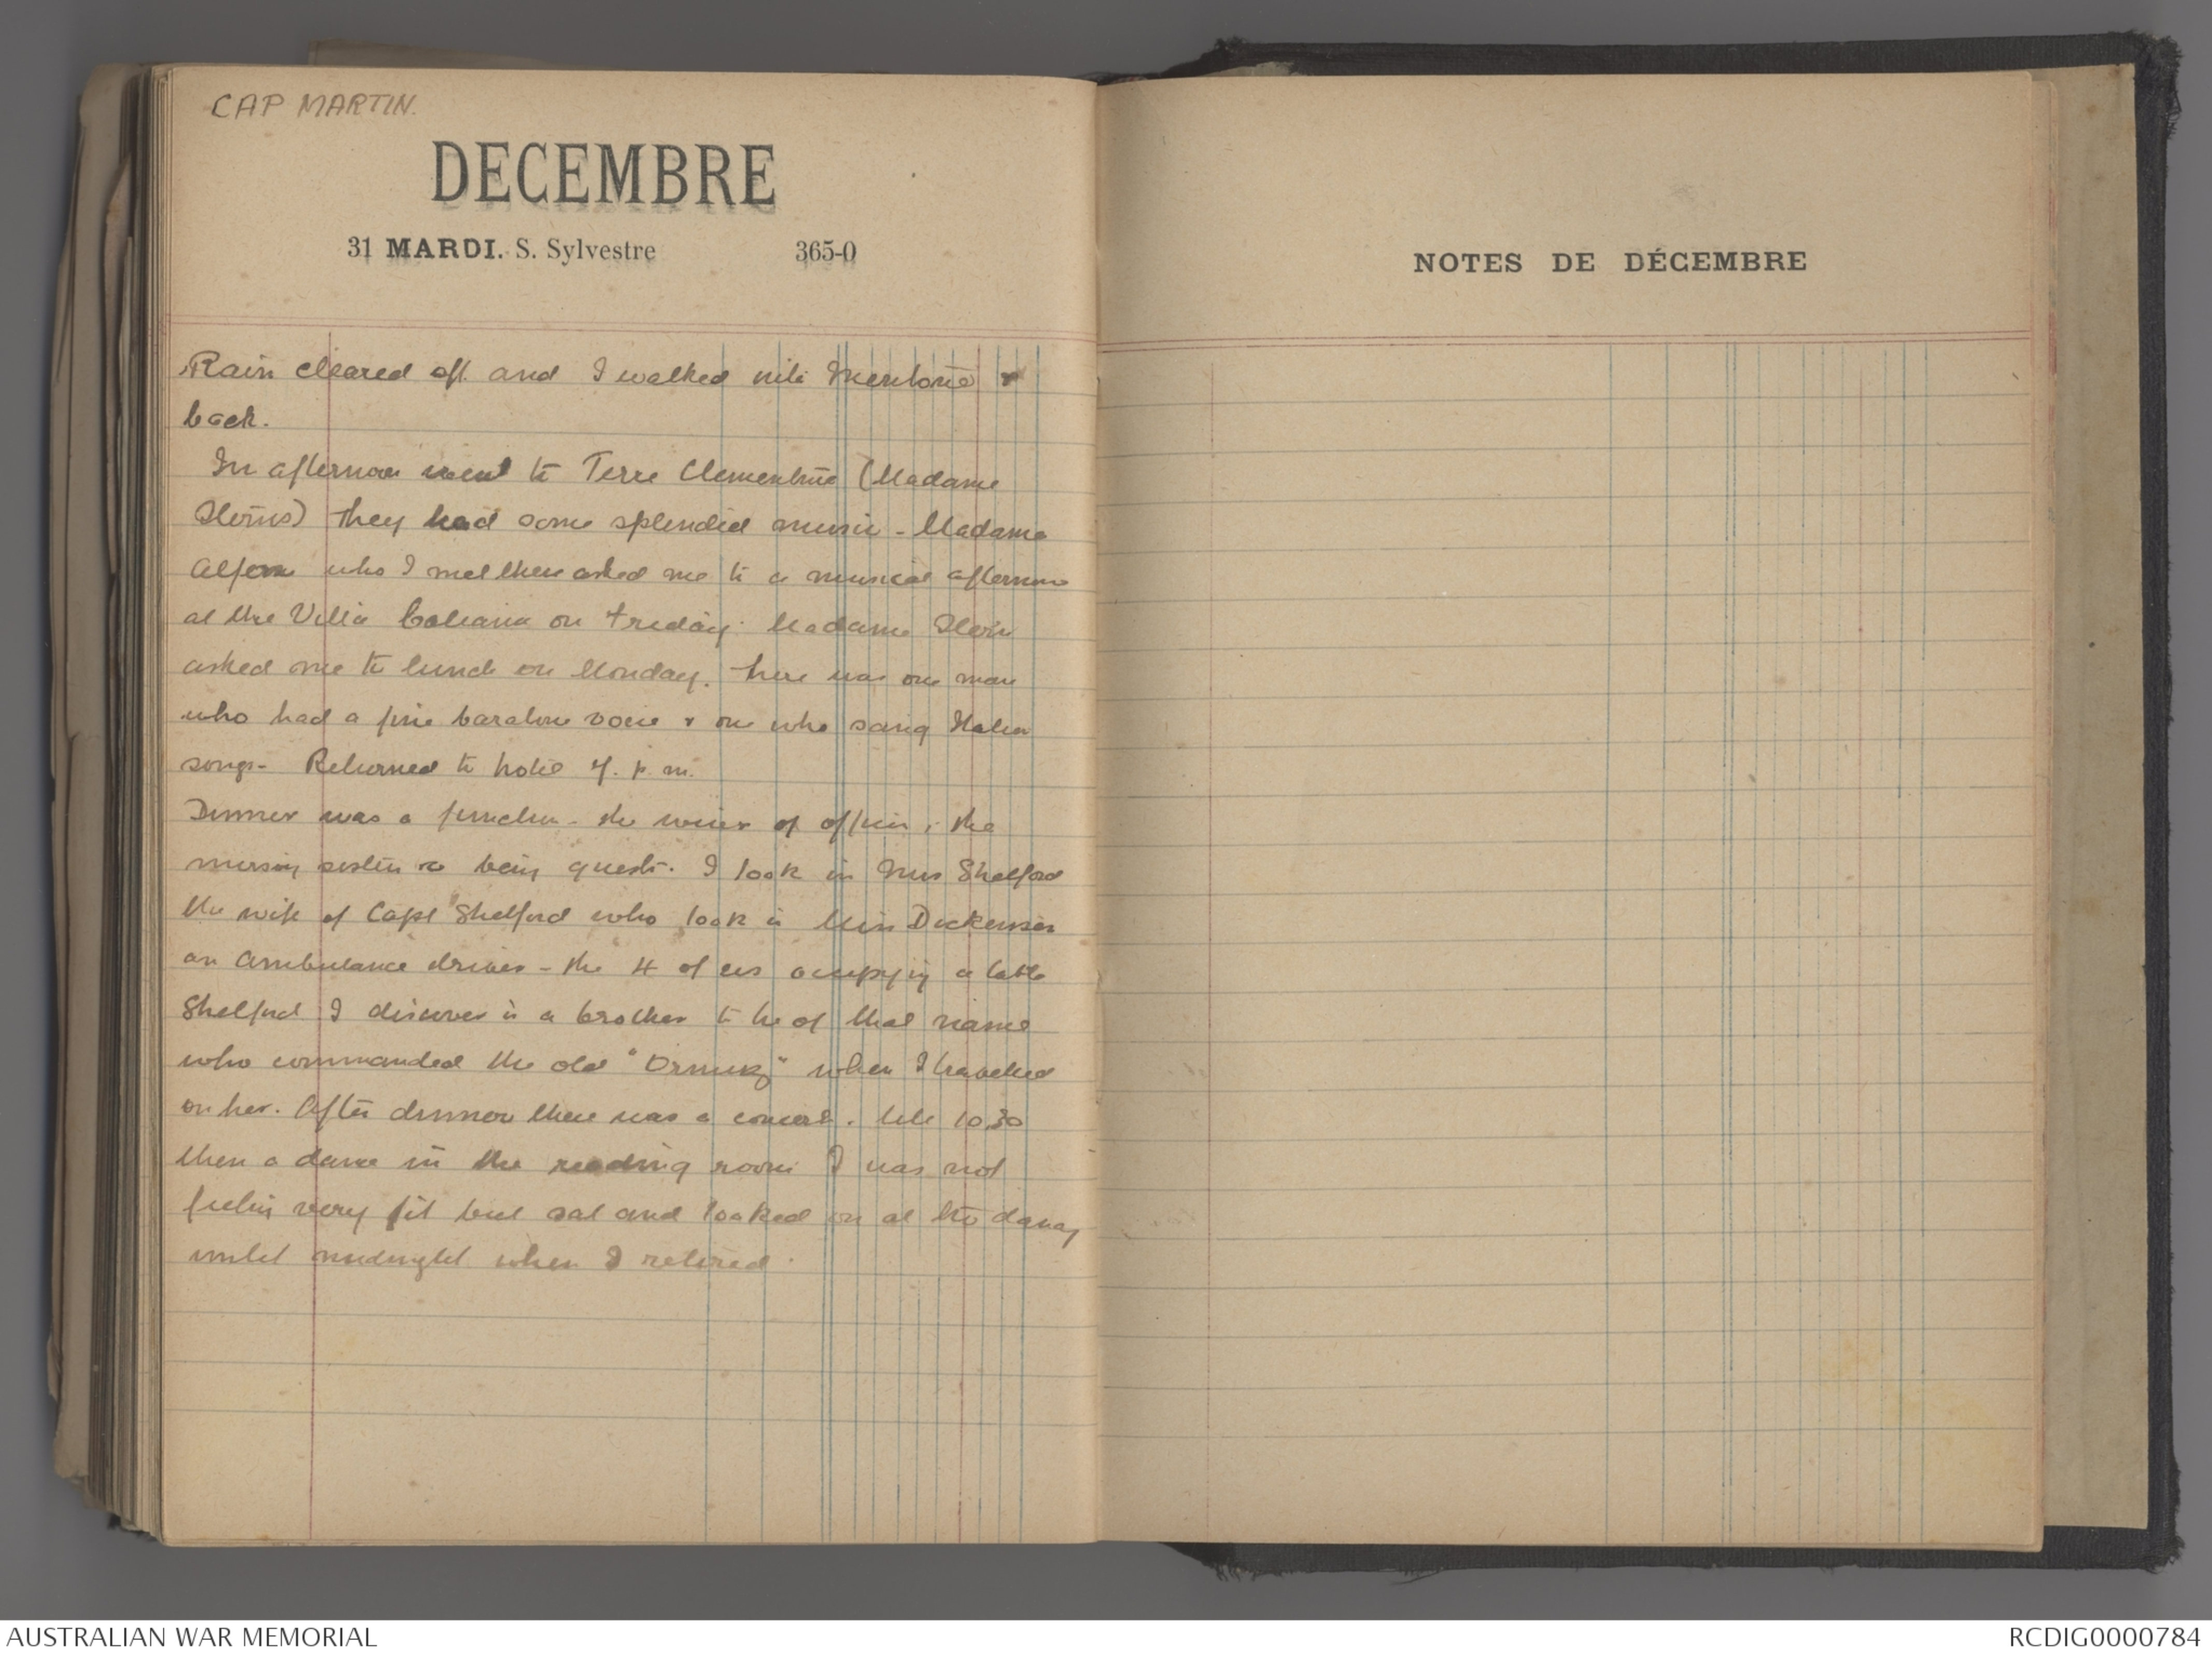 CAP MARTIN.
DECEMBRE
31 MARDI. S. Sylvestre 365-0
Rain cleared off. and I walked into Mentone &
back.
In afternoon went to Terre Clementine (Madame
they had some splendid music - Madame
who I met there asked me to a musical afternoon
at the Villa on Friday. Madame
asked me to lunch on Monday. There was one man
who had a fine baratone voice & one who sang Italian
songs - Returned to hotel 7. p. m.
Dinner was a function - the wives of officers, the
nursing sisters &c being guests. I took in Mrs Shelford
the wife of Capt Shelford who took in Miss Dickenson
an ambulance driver - the 4 of us occupying a table
Shelford I discover is a brother to he of that name
who commanded the old "Ormuz" when I travelled
on her. After dinner there was a concert. till 10.30
then a dance in the reading room I was not
feeling very fit but sat and looked on at the dancing
until midnight when I retired.
NOTES DE DÉCEMBRE
AUSTRALIAN WAR MEMORIAL
RCDIG0000784